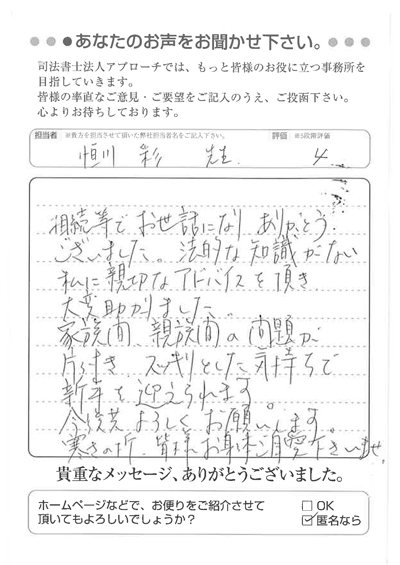 ●●●あなたのお声をお聞かせ下さい。●●●
司法書士法人アプローチでは、もっと皆様のお役に立つ事務所を
目指していきます。
皆様の率直なご意見・ご要望をご記入のうえ、ご投函下さい。
心よりお待ちしております。
担当者 ※貴方を担当させて頂いた弊社担当者名をご記入下さい。 評価 ※5段階評価
恒川 彩 先生 4
相続等でお世話になりありがとう
ございました。法的な知識がない
私に親切なアドバイスを頂き
大変助かりました。
家族間、親族間の問題が
片付き、スッキリとした気持ちで
新年を迎えられます。
今後共よろしくお願いします。
寒さの折、皆様お身体ご自愛下さいませ。
貴重なメッセージ、ありがとうございました。
ホームページなどで、お便りをご紹介させて
頂いてもよろしいでしょうか？
□OK
☑匿名なら